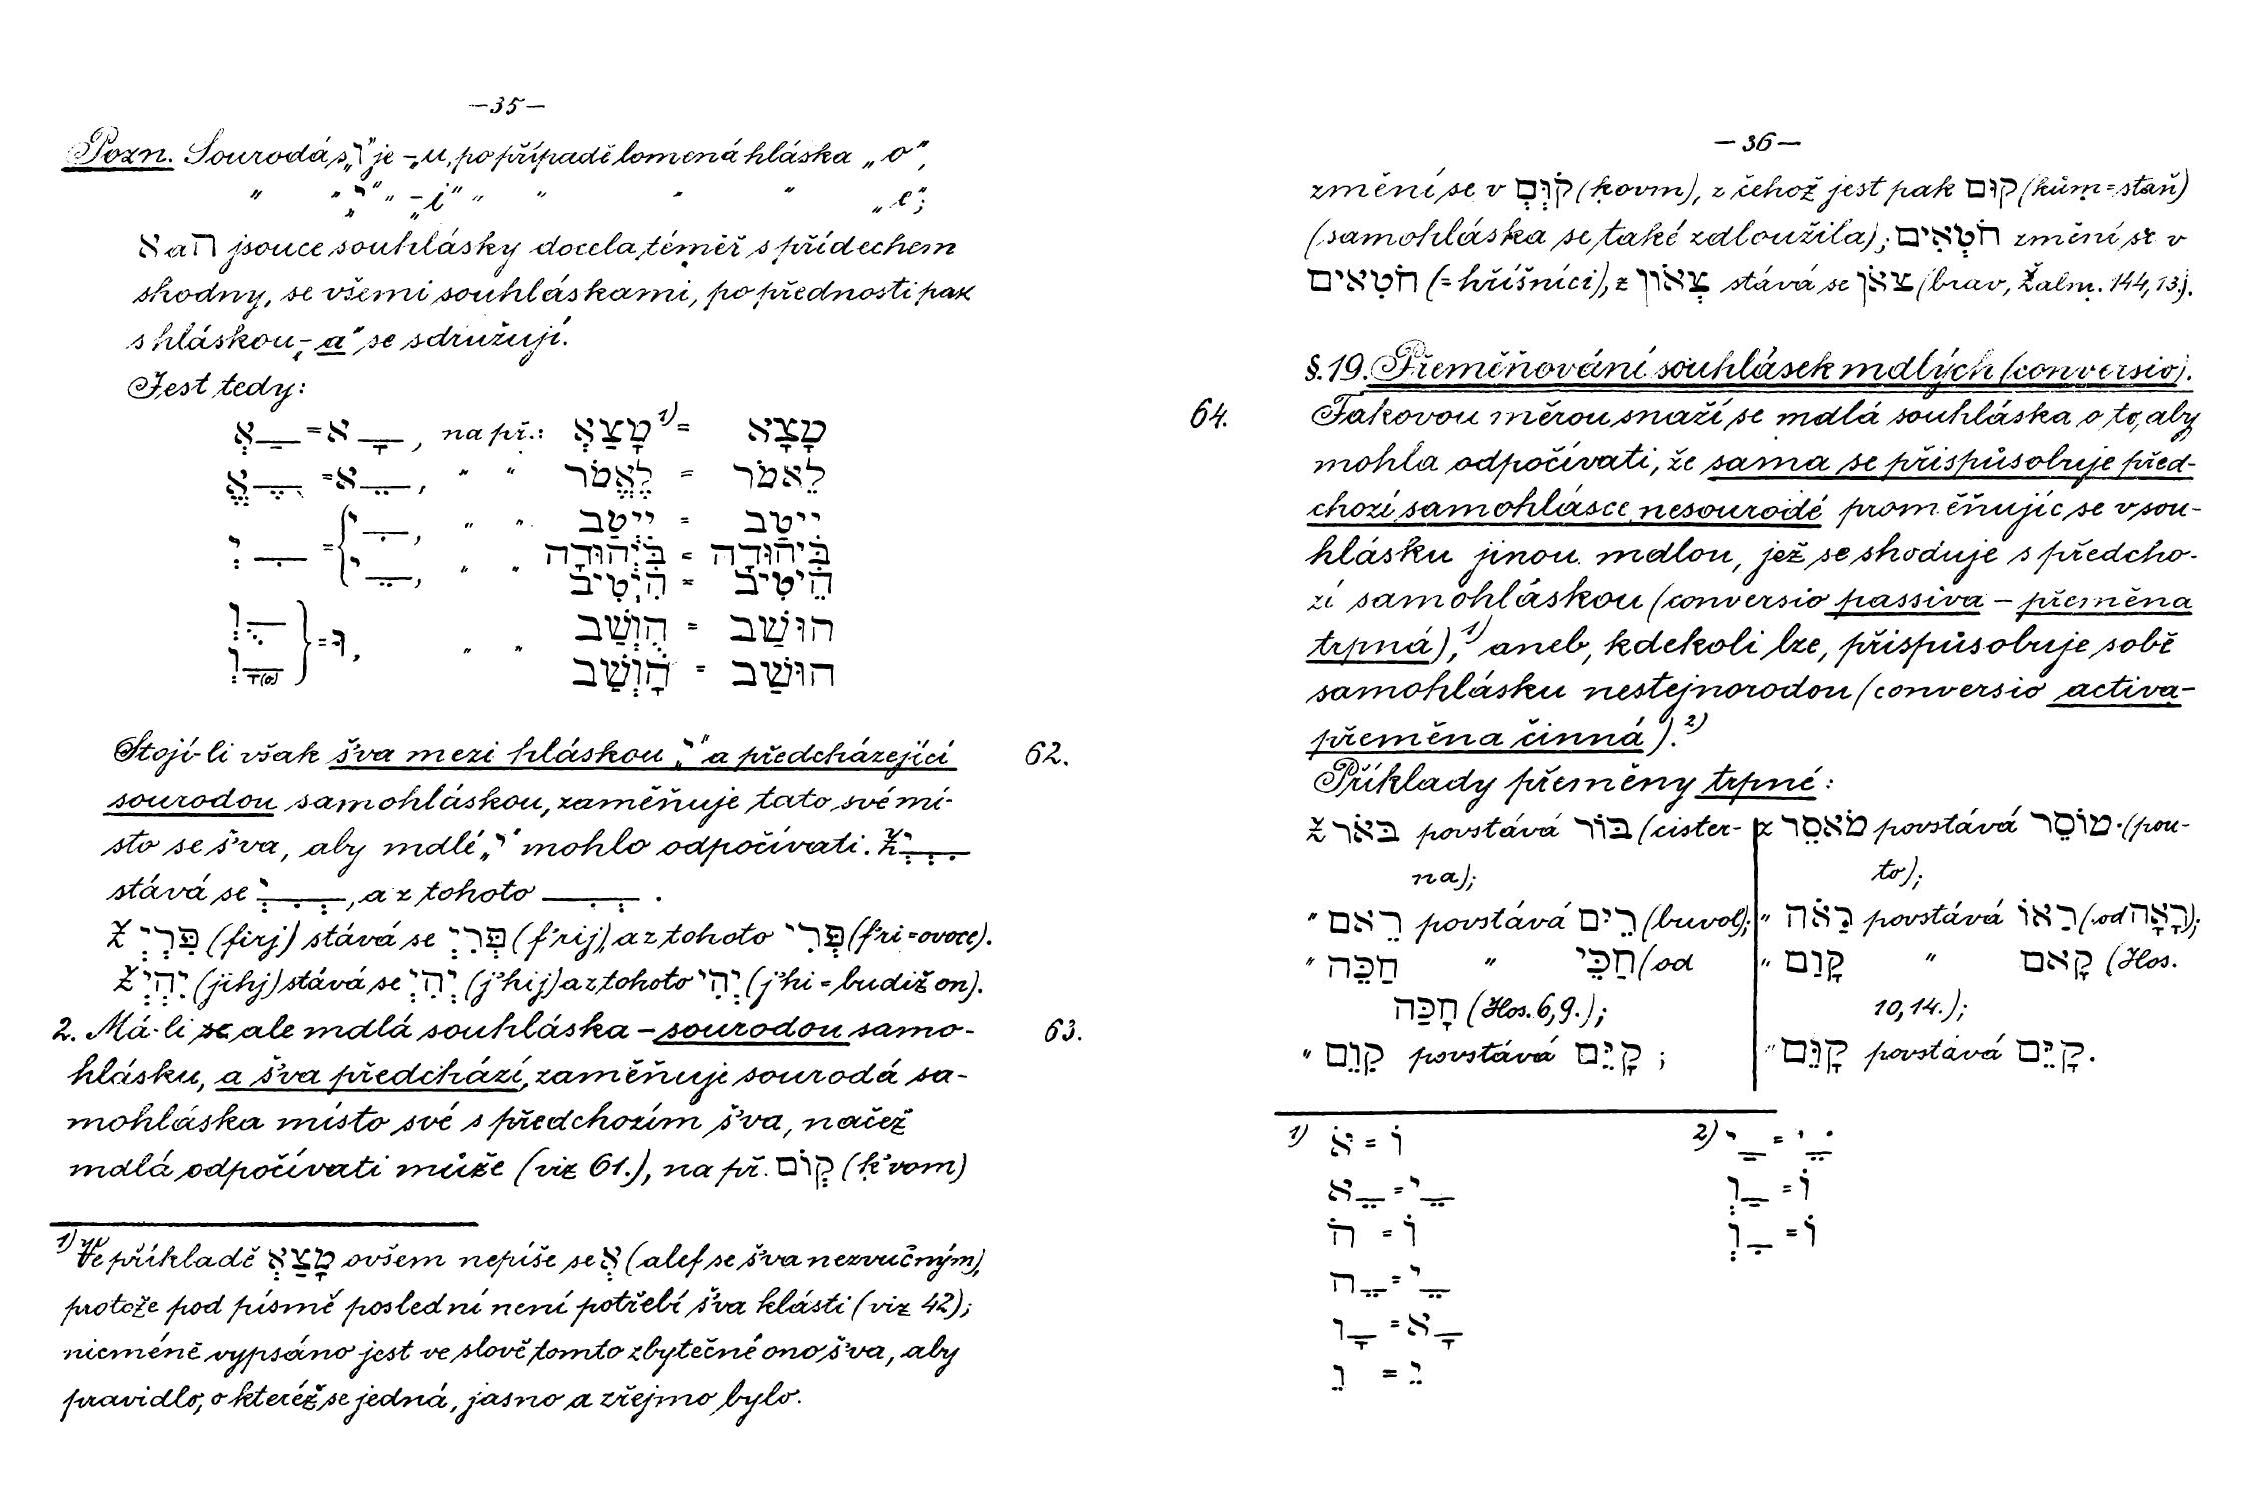 —35—
Pozn. Souroda s „ו" je – „u, po případě lomená hláska „o",
" " „י" " – „i" " " " " „e";
א a ה jsouce souhlásky docela téměř s přídechem
shodny, se všemi souhláskami, po přednosti pak
s hláskou – „a" se sdružují.
Jest tedy:
אְ ַ = א ָ , na př.: מָצַאְ ¹) = מָצָא
אֱ ֶ = א ֵ , " " לֶאֱמֹר = לֵאמֹר
יְ ִ = { י ִ , " " יִיְטַב = יִיטַב
בִּיְהוּדָה = בִּיהוּדָה
י ֵ , " " הִיְטִיב = הֵיטִיב
וְ ֻ } = וּ, " " הֻוְשַׁב = הוּשַׁב
וְ ָ (o) הָוְשַׁב = הוּשַׁב
Stojí-li však š'va mezi hláskou „י" a předcházející 62.
sourodou samohláskou, zaměňuje tato své mí-
sto se š'va, aby mdlé „י" mohlo odpočívati. Z יְ ְ ִ
stává se יְ ִ ְ , a z tohoto ִ ְ .
Z פִּרְיְ (firj) stává se פְּרִיְ (f'rij), a z tohoto פְּרִי (f'ri = ovoce).
Z יִהְיְ (jihj) stává se יְהִיְ (j'hij) a z tohoto יְהִי (j'hi = budiž on).
2. Má-li se ale mdlá souhláska – sourodou samo- 63.
hlásku, a š'va předchází, zaměňuje sourodá sa-
mohláska místo své s předchozím š'va, načež
mdlá odpočívati může (viz 61.), na př. קְוֹם (ḳ'vom)
¹) Ve příkladě מָצַאְ ovšem nepíše se אְ (alef se š'va nezvučným),
protože pod písmě poslední není potřebí š'va klásti (viz 42);
nicméně vypsáno jest ve slově tomto zbytečné ono š'va, aby
pravidlo, o kteréž se jedná, jasno a zřejmo bylo.
—36—
změní se v קֹוְם (ḳovm), z čehož jest pak קוּם (kûm = staň)
(samohláska se také zdloužila); חֹטְאִים změní se v
חֹטִאים (= hříšníci), z צְאֹון stává se צֹאן (brav, Žalm. 144, 13.).
§. 19. Přeměňování souhlásek mdlých (conversio).
64. Takovou měrou snaží se mdlá souhláska o to, aby
mohla odpočívati, že sama se přispůsobuje před-
chozí samohlásce nesourodé proměňujíc se v sou-
hlásku jinou mdlou, jež se shoduje s předcho-
zí samohláskou (conversio passiva – přeměna
trpná),¹) aneb, kdekoli lze, přispůsobuje sobě
samohlásku nestejnorodou (conversio activa-
přeměna činná).²)
Příklady přeměny trpné:
Z בֹּאר povstává בּוֹר (cister- z מֹאסֵר povstává מוֹסֵר (pou-
na); to);
" רֵאם povstává רֵים (buvol); " רַאֹה povstává רַאוֹ (od רָאָה);
" חַכֵּה " חַכֵּי (od " קָוַם " קָאם (Hos.
חָכַּה (Hos. 6, 9.); 10, 14.);
" קַוֵם povstává קָיֵּם ; " קָוֵּם povstává קָיֵּם.
1) אֹ = וֹ 2) י ַ = י ֵ
א ֵ = י ֵ וְ ַ = וֹ
הֹ = וֹ וְ ִ = וֹ
ה ֵ = י ֵ
ו ָ = א ָ
וֵ = יֵ